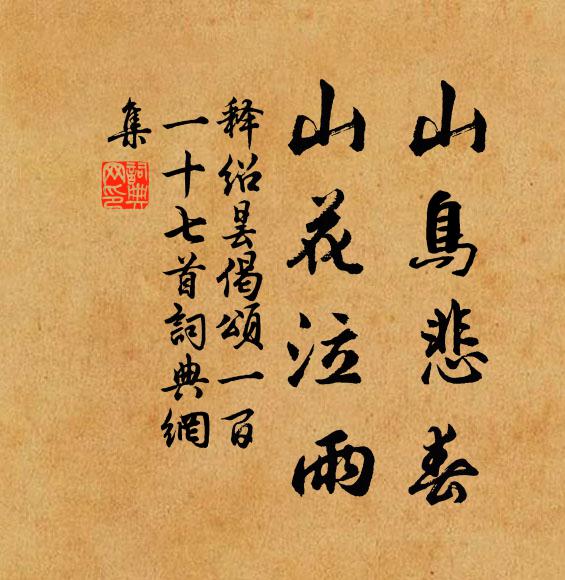 山鳥悲春
山花泣雨
释紹曇偈頌一百
一十七首詞典網
集
詞典網印